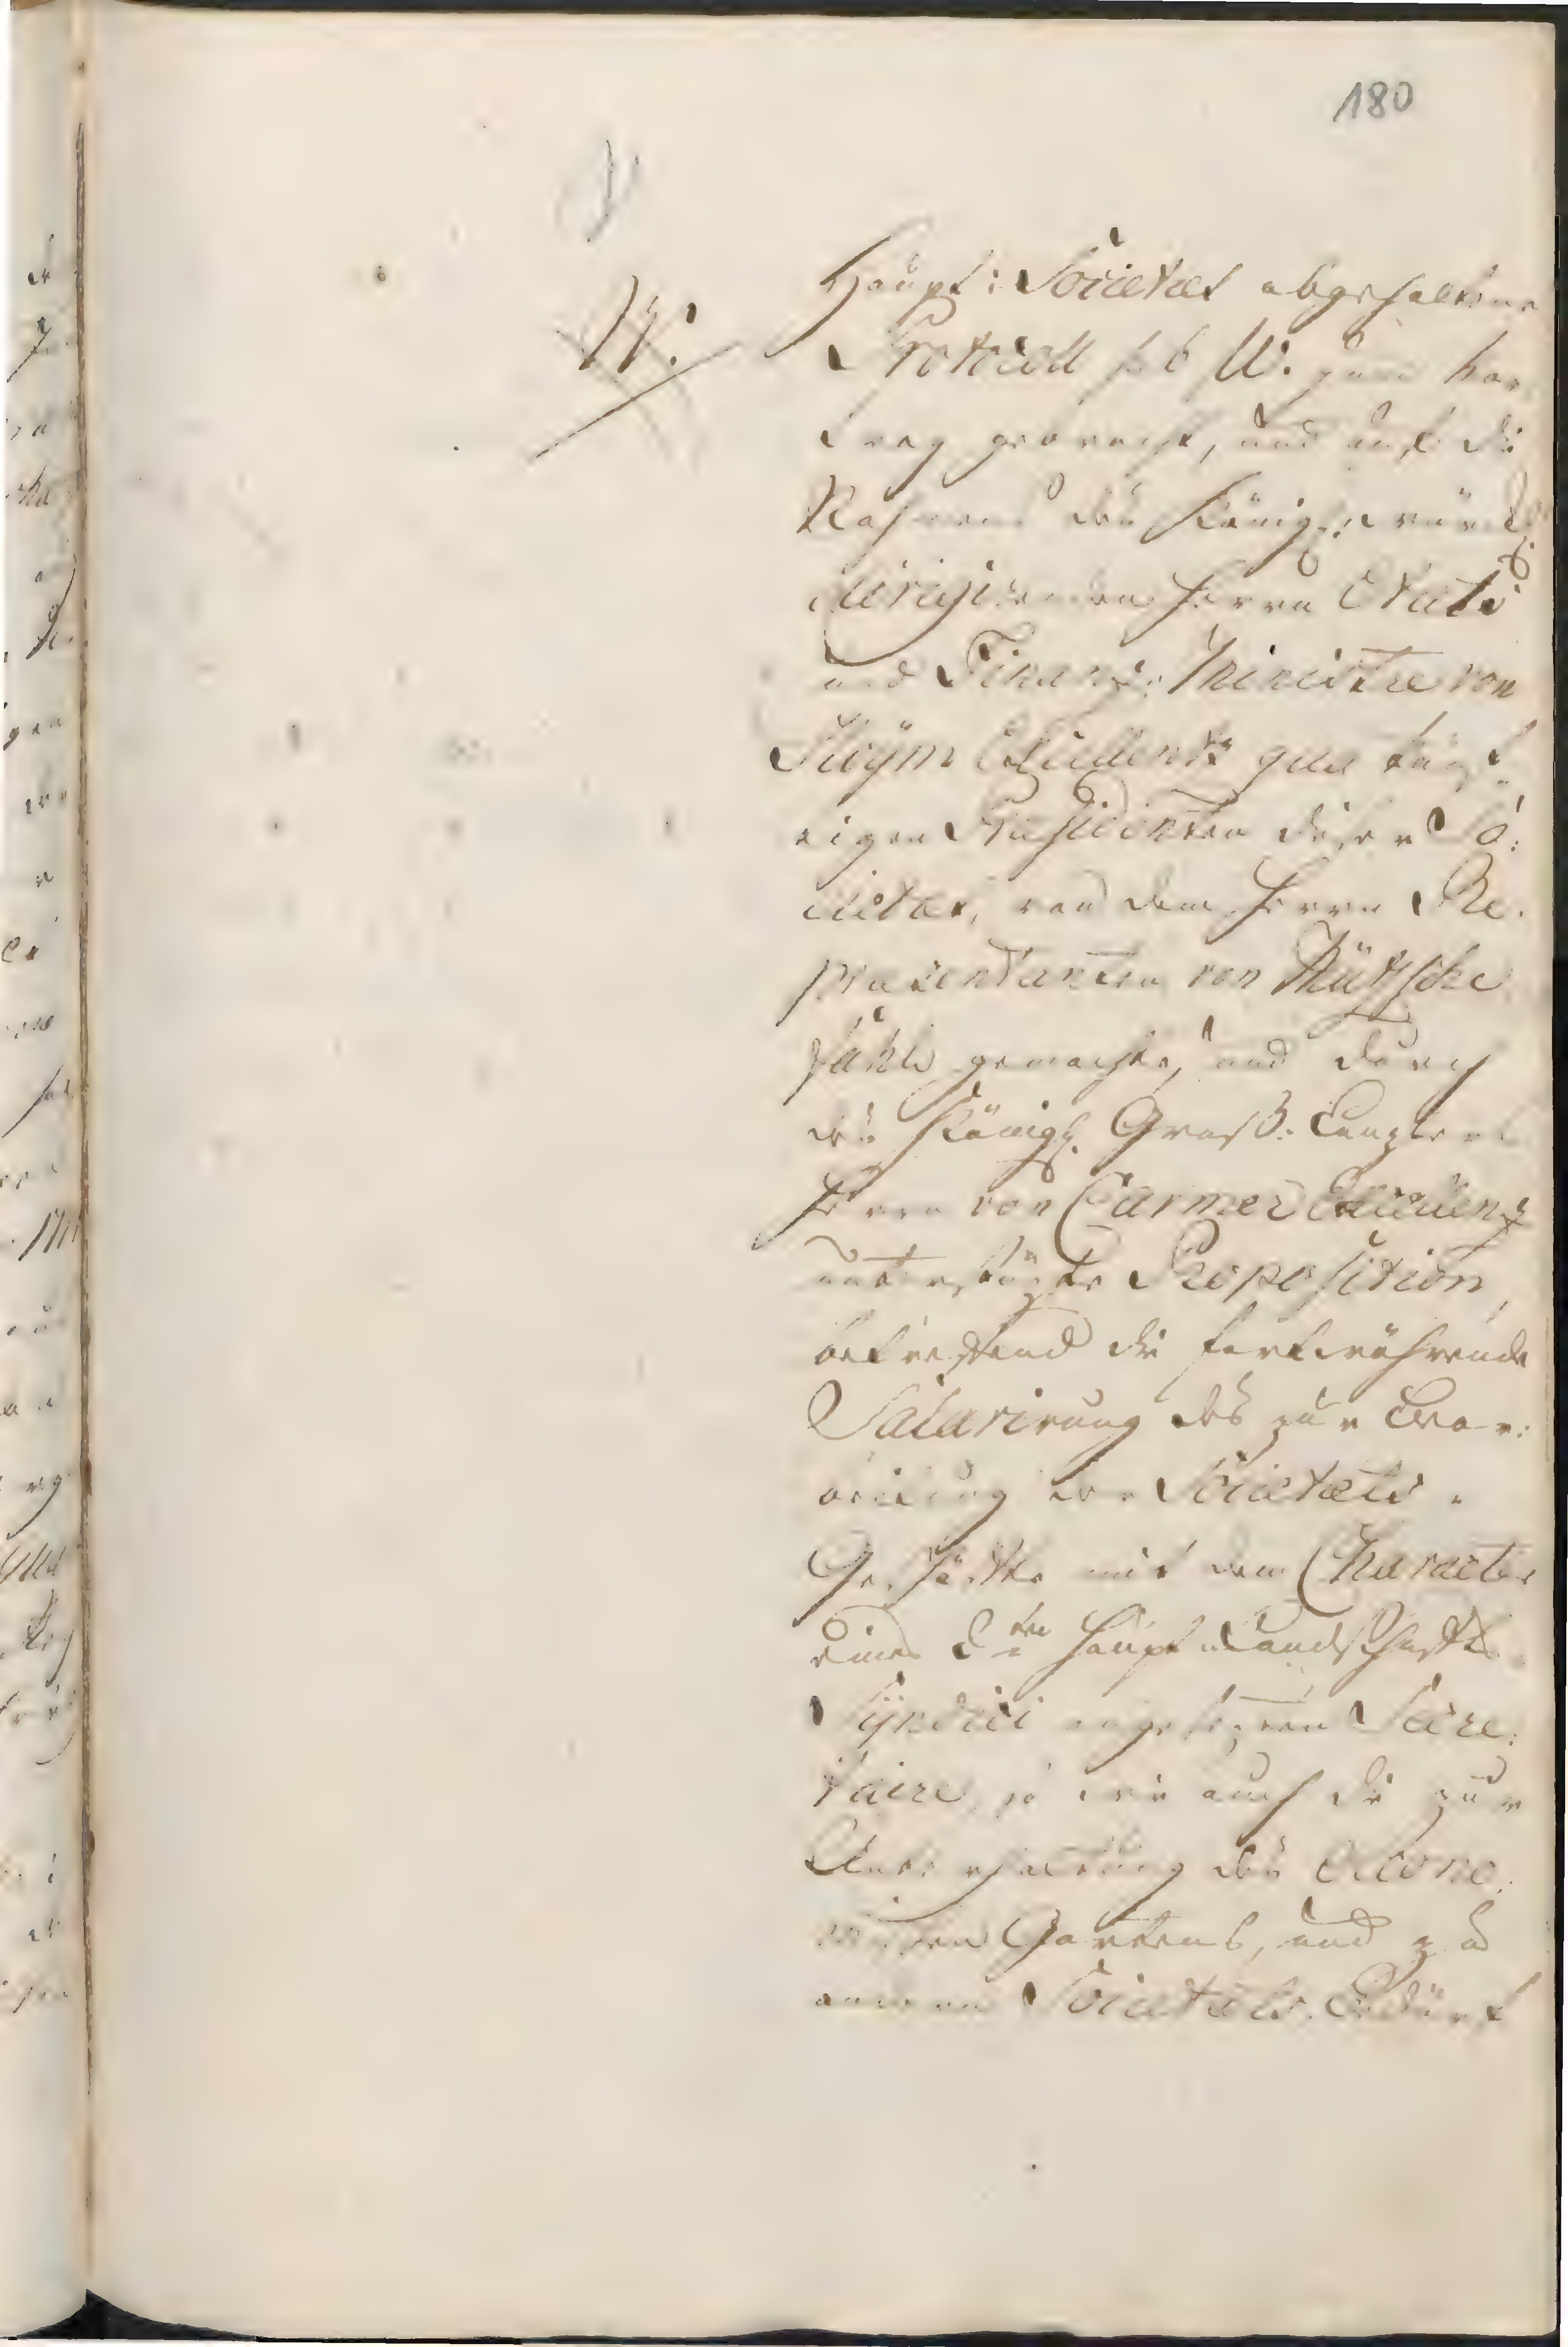 180
W.
Haupt: Societaet abgehaltene
Protocoll sub W. zum Vor
trag gebracht, und auf die
Nahmens des Königl: würckl.
dirigirenden Herrn Etats
und Finanz: Ministre von
Hoÿm Excellentz qua
eigen Praesidenten dieser So:
cietaet, von dem Herrn Re:
praesentanten von
gemachte, und durch
des Königl. Groß: Canzlers
Herrn von Carmer Excellenz
unterstüzte Proposition,
betreffend die fortwährende
Salarirung des zur Bear:
beitung der Societaets
Geschäfte mit dem Character
eines 2ten Haupt Landschafts
Sÿndici angesezten Secre:
taire, so wie auch die zur
Unterhaltung des Oecono:
mischen Gartens, und zu
anderen Societaets. Bedürf